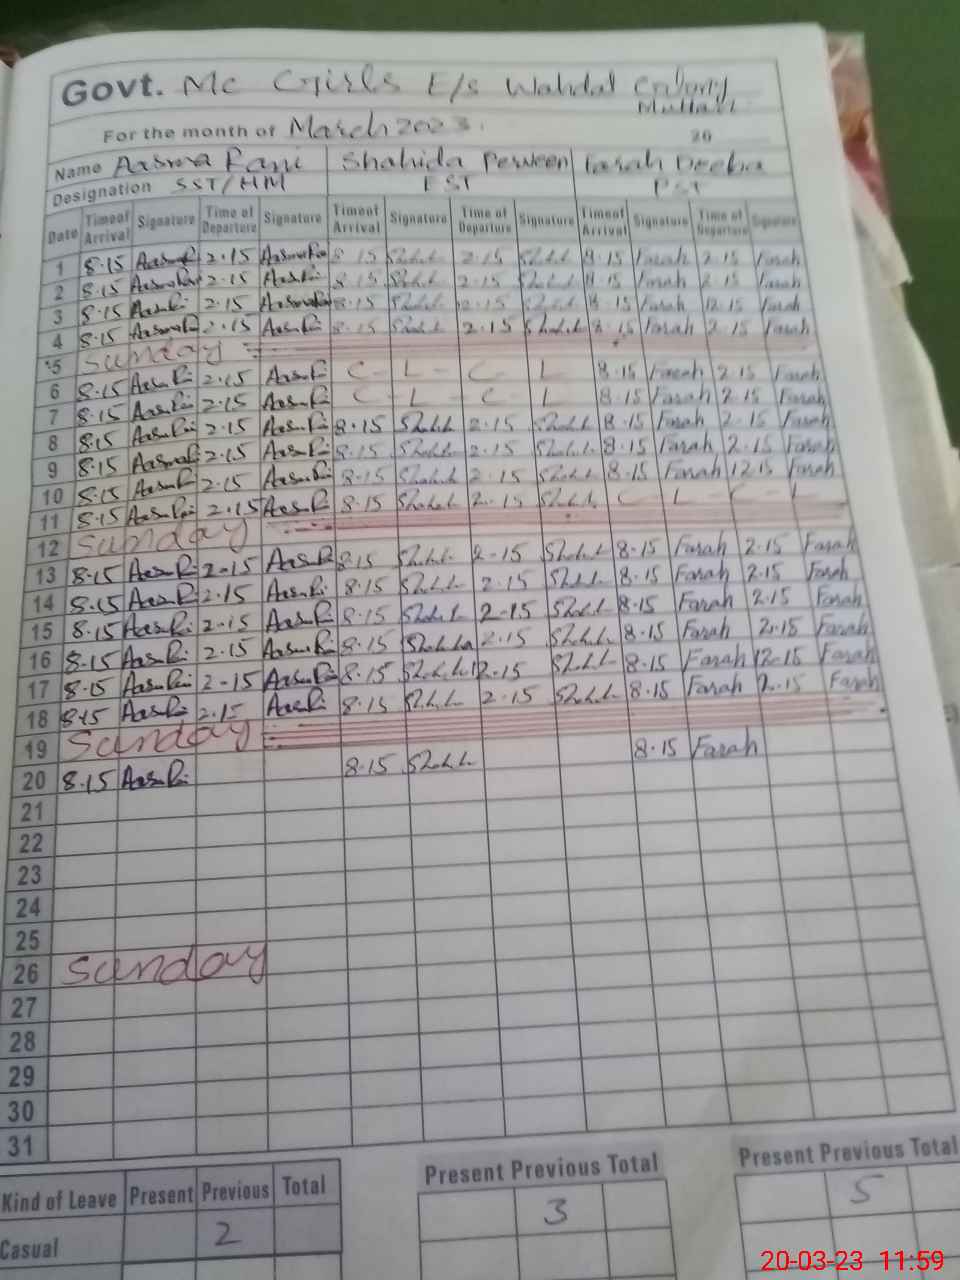 Govt. Mc Girls E/s Wahdat Colony
Multan
For the month of March 2023. 20
Name Aasma Rani Shahida Perveen Farah Deeba
Designation SST/HM EST PST
Date Time of Arrival Signature Time of Departure Signature Time of Arrival Signature Time of Departure Signature Time of Arrival Signature Time of Departure Signature
1 8.15 2.15 8.15 2.15 8.15 Farah 2.15 Farah
2 8.15 2.15 8.15 2.15 8.15 Farah 2.15 Farah
3 8.15 2.15 8.15 2.15 8.15 Farah 2.15 Farah
4 8.15 2.15 8.15 2.15 8.15 Farah 2.15 Farah
5 Sunday
6 8.15 2.15 C - L - C - L 8.15 Farah 2.15 Farah
7 8.15 2.15 C - L - C - L 8.15 Farah 2.15 Farah
8 8.15 2.15 8.15 2.15 8.15 Farah 2.15 Farah
9 8.15 2.15 8.15 2.15 8.15 Farah 2.15 Farah
10 8.15 2.15 8.15 2.15 8.15 Farah 2.15 Farah
11 8.15 2.15 8.15 2.15 C - L - C - L
12 Sunday
13 8.15 2.15 8.15 2.15 8.15 Farah 2.15 Farah
14 8.15 2.15 8.15 2.15 8.15 Farah 2.15 Farah
15 8.15 2.15 8.15 2.15 8.15 Farah 2.15 Farah
16 8.15 2.15 8.15 2.15 8.15 Farah 2.15 Farah
17 8.15 2.15 8.15 2.15 8.15 Farah 2.15 Farah
18 8.15 2.15 8.15 2.15 8.15 Farah 2.15 Farah
19 Sunday
20 8.15 8.15 8.15 Farah
21
22
23
24
25
26 Sunday
27
28
29
30
31
Kind of Leave Present Previous Total Present Previous Total Present Previous Total
Casual 2 3 5
20-03-23 11:59